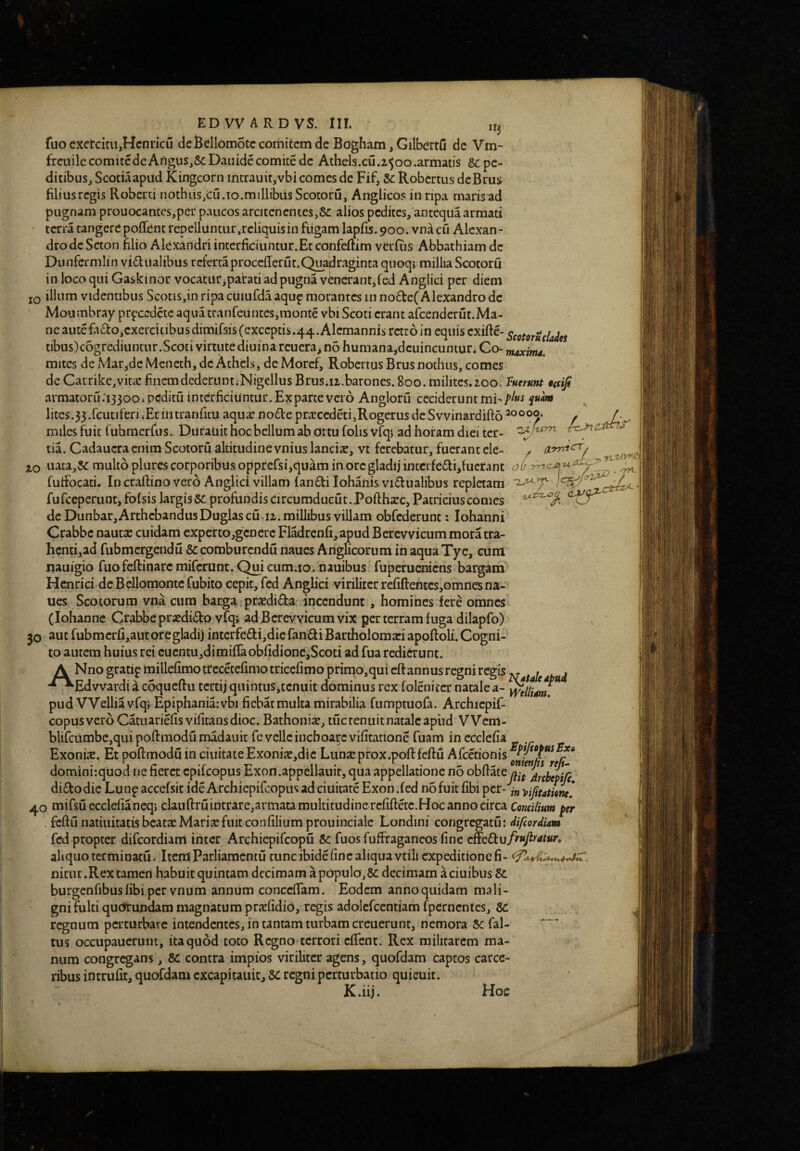 EDVVARDVS. III. 113
suo exercitu,Henricũ deBellomõte comitem de Bogham, Gilbertũ de Vm-
freuile comitẽ de Angus,& Dauidẽ comitẽ de Athels.cũ.2500.armatis & pe-
ditibus, Scotiã apud Kingcorn intrauit,vbi comes de Fif, & Robertus deBrus
filius regis Roberti nothus,cũ.10.millibus Scotorũ, Anglicos in ripa maris ad
pugnam prouocantes,per paucos arcitenentes,& alios pedites, antequã armati
terrã tangere possent repelluntur,reliquis in fugam lapsis.900. vnà cũ Alexan-
dro de Seton filio Alexandri interficiuntur.Et confestim versus Abbathiam de
Dunfermlin victualibus refertã processerũt.Quadraginta quoq; millia Scotorũ
in loco qui Gaskinor vocatur,parati ad pugnã venerant,sed Anglici per diem
10 illum videntibus Scotis,in ripa cuiusdã aquę morantes in nocte(Alexandro de
Moumbray pręcedẽte aquã transeuntes,montẽ vbi Scoti erant ascenderũt.Ma-
ne autẽ facto,exercitibus dimissis (exceptis.44.Alemannis retrò in equis existẽ-
tibus)cõgrediuntur.Scoti virtute diuina reuera, nõ humana,deuincuntur. Co-
mites de Mar,de Meneth, de Athels, de Moref, Robertus Brus nothus, comes
de Carrike,vitæ finem dederunt.Nigellus Brus.12.barones.800.milites.200.
armatorũ.13300.peditũ interficiuntur. Ex parte verò Anglorũ ceciderunt mi-
lites.33.scutiferi.Et in transitu aquæ nocte præcedẽti,Rogerus de Svvinardistõ
miles fuit submersus. Durauit hoc bellum ab ortu solis vsq; ad horam diei ter-
tiã. Cadauera enim Scotorũ altitudine vnius lanciæ, vt ferebatur, fuerant ele-
20 uata,& multò plures corporibus oppressi,quàm in ore gladij interfecti,fuerant
suffocati. In crastino verò Anglici villam sancti Iohãnis victualibus repletam
susceperunt, fossis largis & profundis circumducũt. Posthæc, Patricius comes
de Dunbar,Arthebandus Duglas cũ.12. millibus villam obsederunt : Iohanni
Crabbe nautæ cuidam experto,genere Flãdrensi,apud Berevvicum morã tra-
henti,ad submergendũ & comburendũ naues Anglicorum in aqua Tye, cum
nauigio suo festinare miserunt. Qui cum.10. nauibus superueniens bargam
Henrici de Bellomonte subito cepit, sed Anglici viriliter resistentes,omnes na-
ues Scotorum vnà cum barga prædicta incendunt , homines ferè omnes
(Iohanne Crabbe prædicto vsq; ad Berevvicum vix per terram fuga dilapso)
30 aut submersi,aut ore gladij interfecti,die sancti Bartholomæi apostoli. Cogni-
to autem huius rei euentu,dimissa obsidione,Scoti ad sua redierunt.
ANno gratię millesimo trecẽtesimo tricesimo primo,qui est annus regni regis
Edvvardi à cõquestu tertij quintus,tenuit dominus rex soleniter natale a-
pud VVelliã vsq; Epiphaniã:vbi fiebãt multa mirabilia sumptuosa. Archiepis-
copus verò Cãtuariẽsis visitans dioc. Bathoniæ, tũc tenuit natale apud VVem-
blifcumbe,qui postmodũ mãdauit se velle inchoare visitationẽ suam in ecclesia
Exoniæ. Et postmodũ in ciuitate Exoniæ,die Lunæ prox.post festũ Ascẽtionis
domini:quod ne fieret episcopus Exon.appellauit, qua appellatione nõ obstãte
dicto die Lunę accessit idẽ Archiepiscopus ad ciuitatẽ Exon.sed nõ fuit sibi per-
40 missũ ecclesiã neq; claustrũ intrare,armata multitudine resistẽte.Hoc anno circa
festũ natiuitatis beatæ Mariæ fuit consilium prouinciale Londini congregatũ:
sed propter discordiam inter Archiepiscopũ & suos suffraganeos sine effectu
aliquo terminatũ. Item Parliamentũ tunc ibidẽ sine aliqua vtili expeditione fi-
nitur.Rex tamen habuit quintam decimam à populo,& decimam à ciuibus &
burgensibus sibi per vnum annum concessam. Eodem anno quidam mali-
gni fulti quorundam magnatum præsidio, regis adolescentiam spernentes, &
regnum perturbare intendentes, in tantam turbam creuerunt, nemora & sal-
tus occupauerunt, ita quòd toto Regno terrori essent. Rex militarem ma-
num congregans , & contra impios viriliter agens, quosdam captos carce-
ribus intrusit, quosdam excapitauit, & regni perturbatio quieuit.
K.iij. Hoc
Scotorũ clades
maxima.
Fuerunt occisi
plus quàm
20000.
Natale apud
Welliam.
Episcopus Exo
niensis resi-
stit Archepisc.
in visitatione.
Concilium per
discordiam
frustratur.